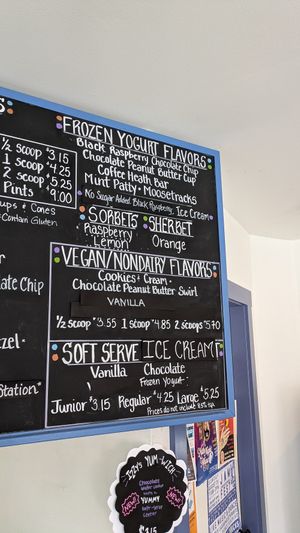 S
½ Scoop $3.15
1 Scoop $4.25
2 Scoop $5.25
Pints $9.00
ups & Cones
Contain Gluten
ate Chip
zel.
Station."
FROZEN YOGURT FLAVORS
Black Raspberry Chocolate Chip
Chocolate Peanut Butter Cup
Coffee Heath Bar
Mint Patty • Moosetracks
No Sugar Added Black Raspberry Ice Cream
SORBETS
Raspberry
Lemon
SHERBET
Orange
VEGAN/NONDAIRY FLAVORS
Cookies & Cream •
Chocolate Peanut Butter Swirl
VANILLA
½ Scoop $3.55 1 Scoop $4.85 2 Scoops $5.70
SOFT SERVE ICE CREAM
Vanilla Chocolate
Frozen Yogurt
Junior $3.15 Regular $4.25 Large $5.25
Prices do not include 8.5% tax
IZZY'S YUM-WICH
Chocolate
wafer cookie
with a
YUMMY
Soft-Serve
Center
NEW
NEW
$3.15